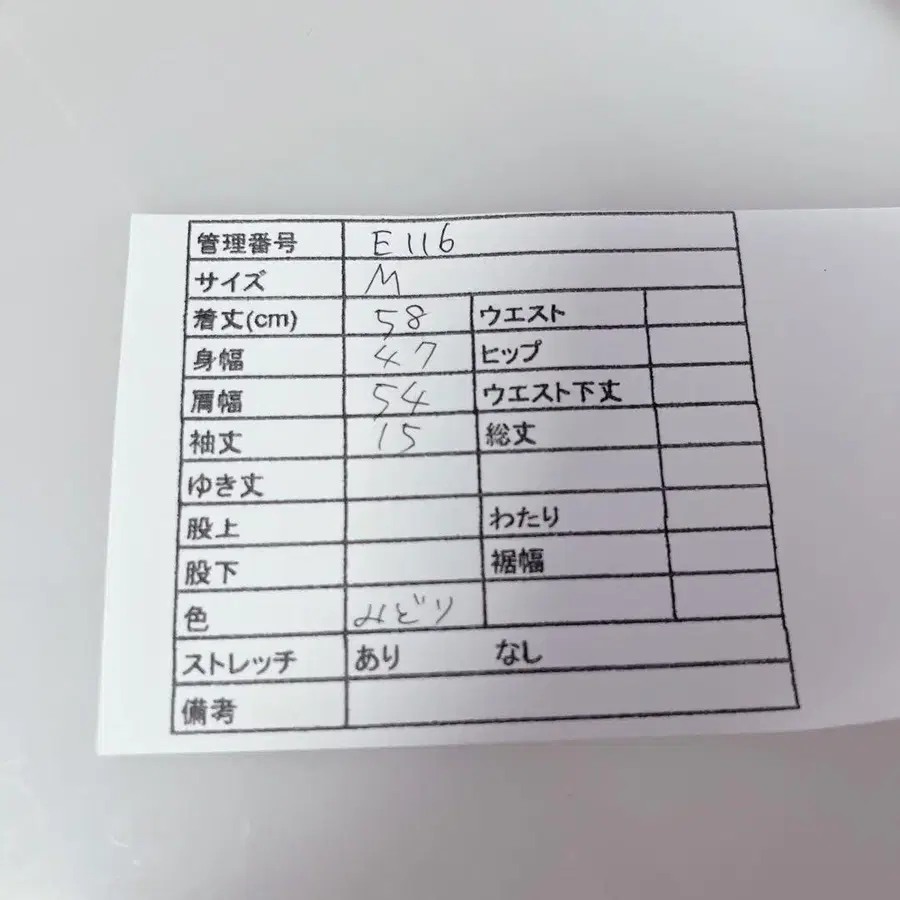 管理番号 E116
サイズ M
着丈(cm) 58 ウエスト
身幅 47 ヒップ
肩幅 54 ウエスト下丈
袖丈 15 総丈
ゆき丈
股上 わたり
股下 裾幅
色 みどり
ストレッチ あり なし
備考